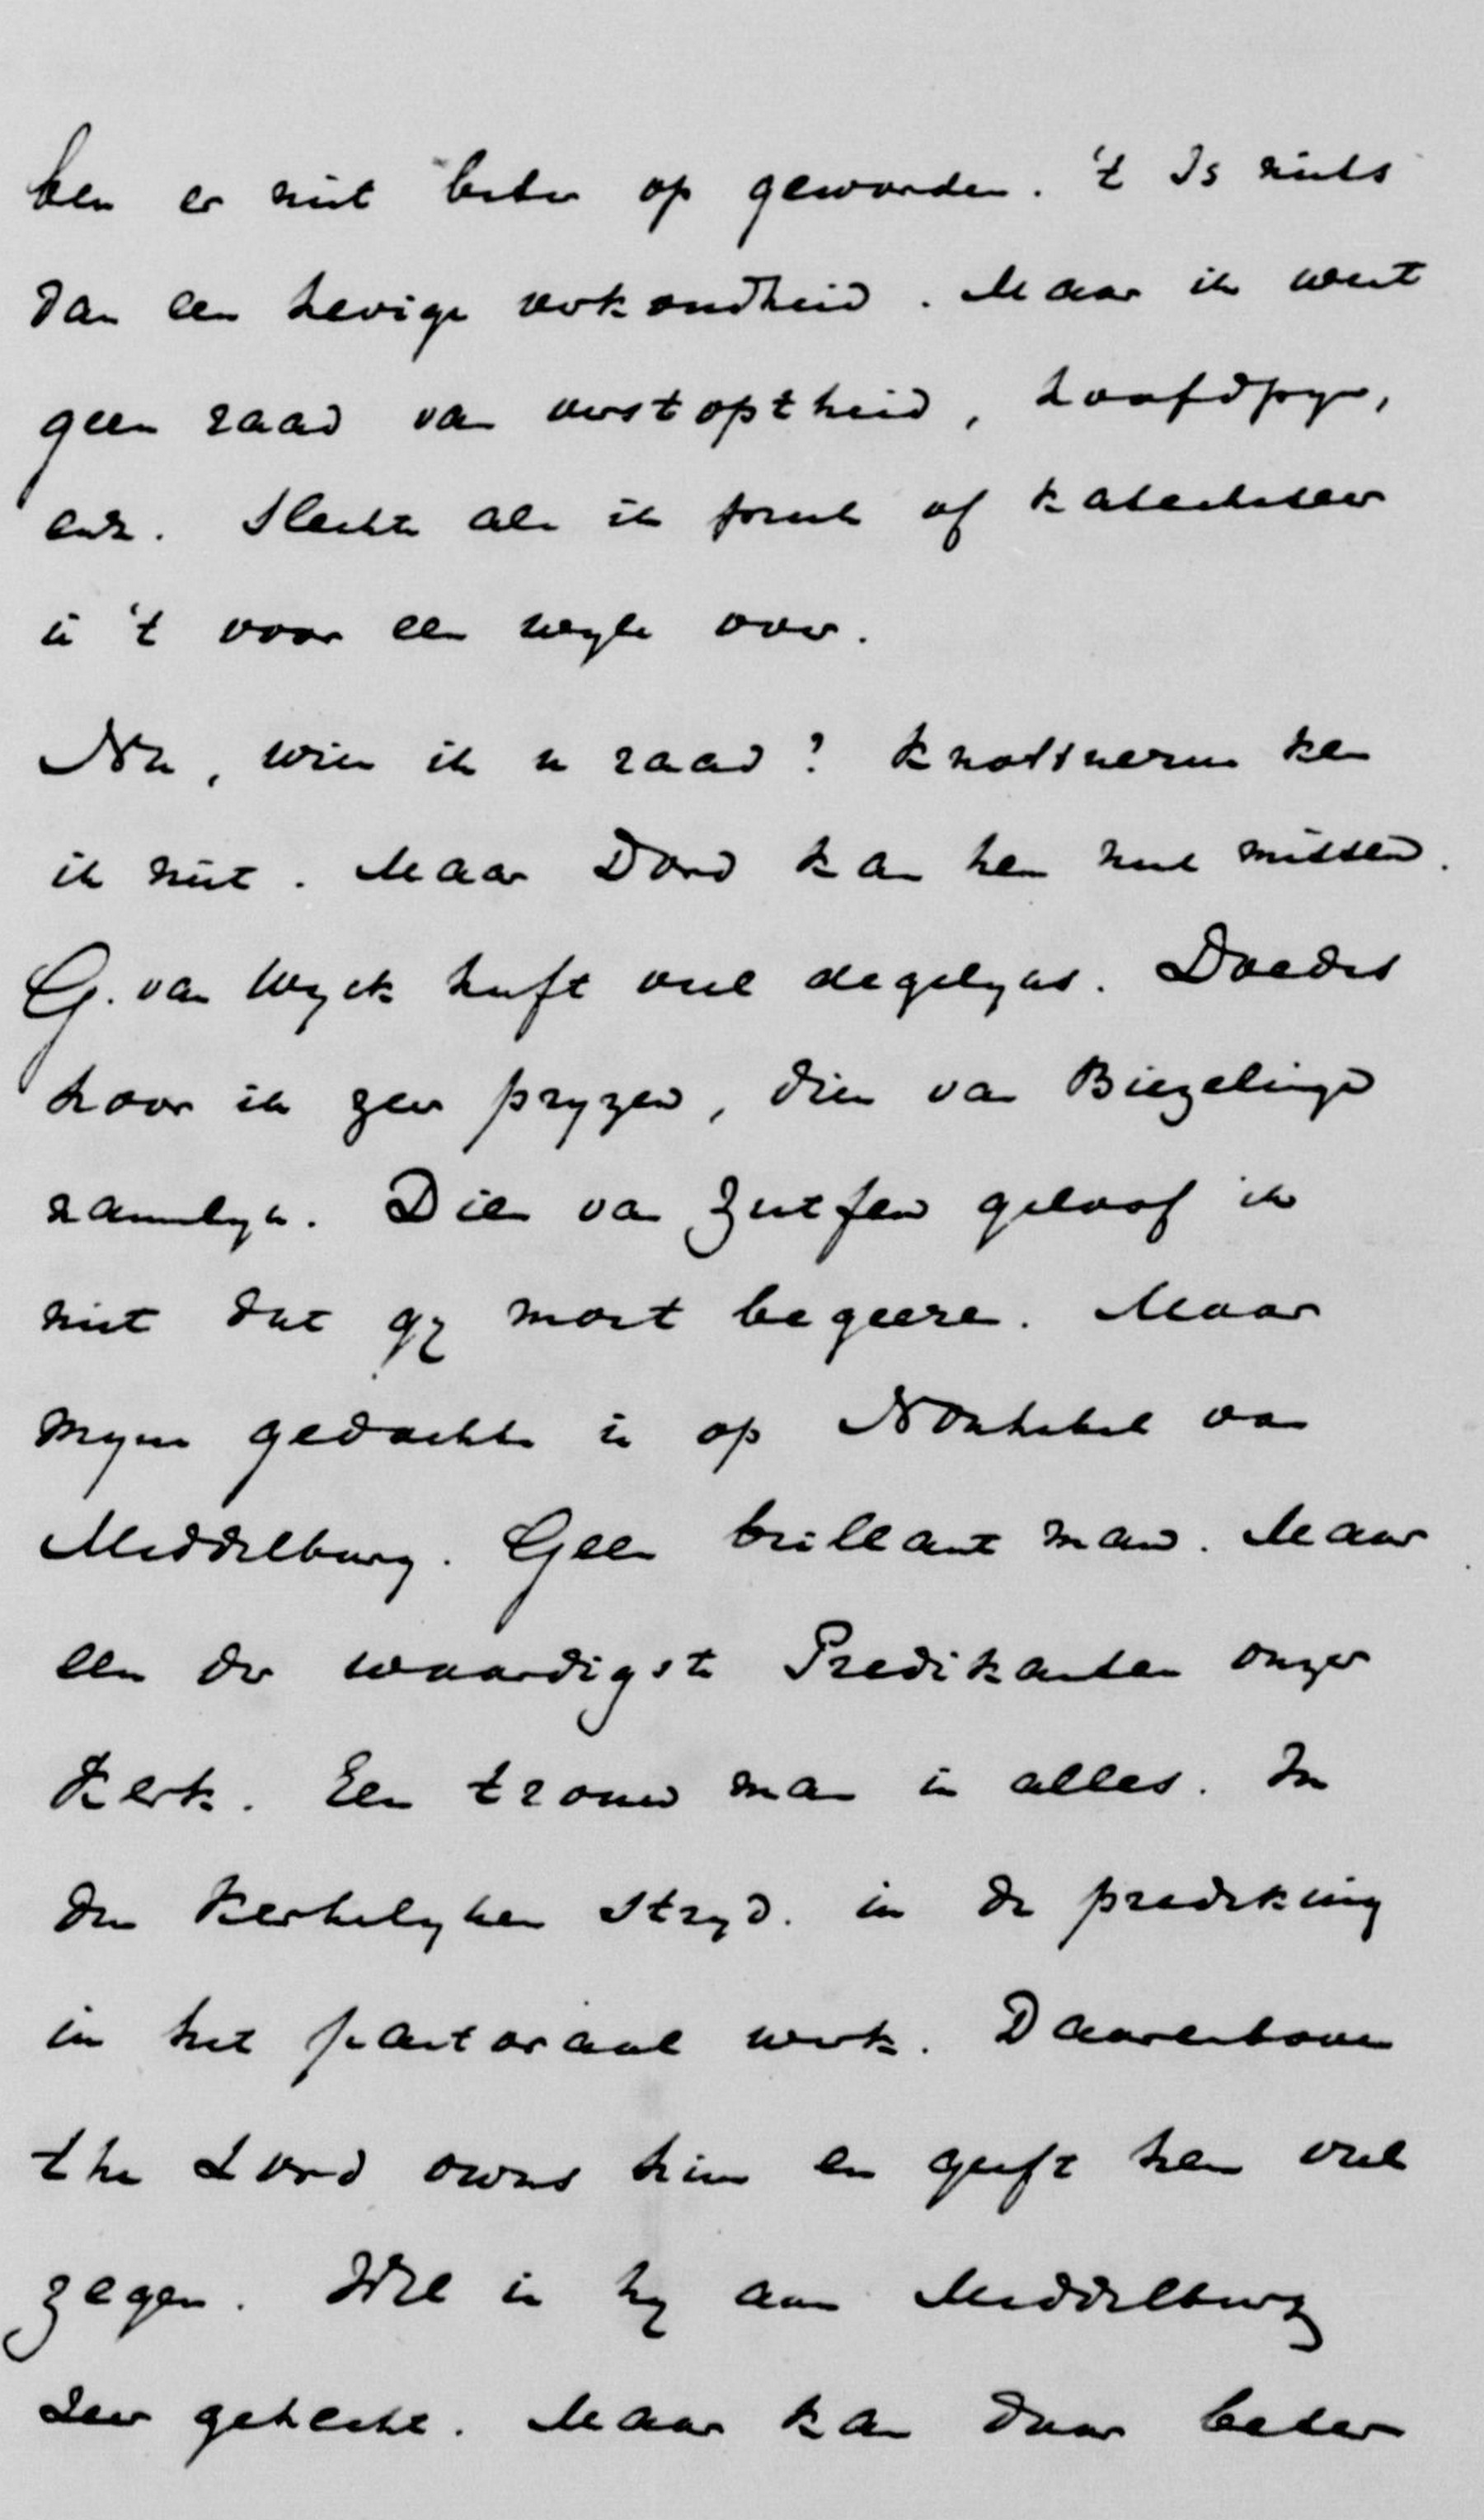 ben er niet beter op geworden. 't Is niets
dan een hevige verkoudheid. Maar ik weet
geen raad van verstoptheid, hoofdpyn,
enz. Slechts als ik preek of katechiseer
is 't voor een wyle over.
Nu, wien ik u raad? Knottnerus ken
ik niet. Maar Dord kan hem niet missen.
G. van Wyck heeft veel degelyks. Doedes
hoor ik zeer pryzen, dien van Biezelinge
namelyk. Dien van Zutfen geloof ik
niet dat gy moet begeeren. Maar
myne gedachte is op Nonhebel van
Middelburg. Geen brillant man. Maar
een der waardigste Predikanten onzer
Kerk. Een trouw man in alles. In
den Kerkelyken Stryd. in de prediking
in het pastoraal werk. Daarenboven
the Lord owns him en geeft hem veel
zegen. Wel is hy aan Middelburg
zeer gehecht. Maar kan daar beter